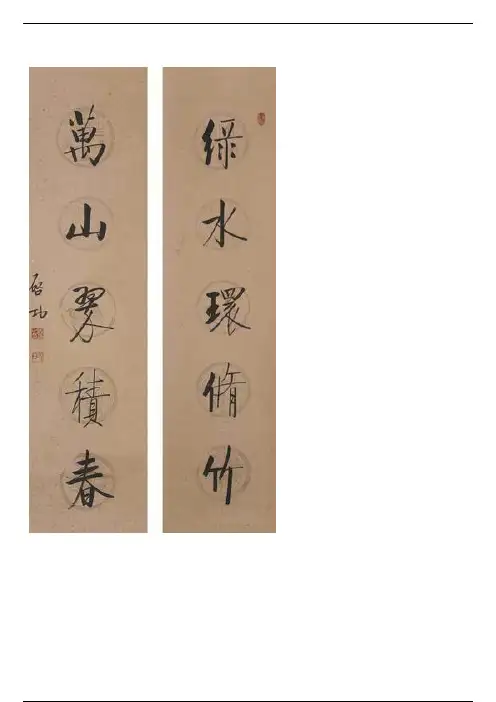 绿水環脩竹
萬山翠積春
启功